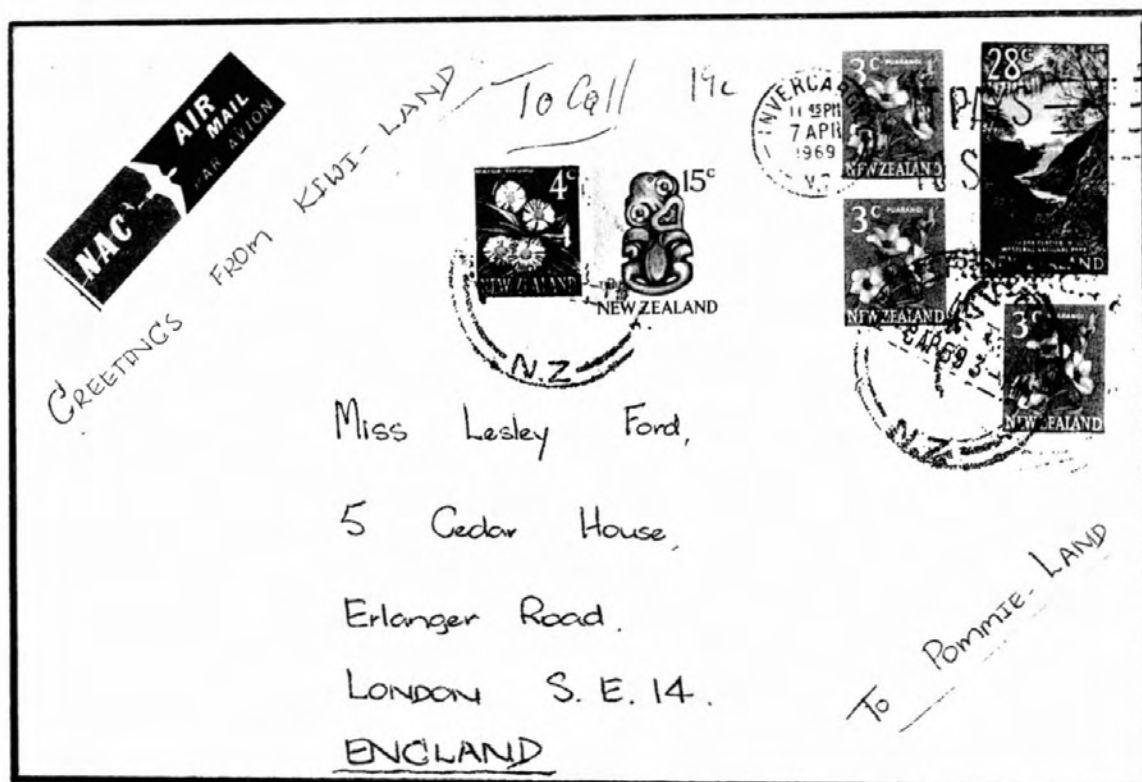 NAC
AIR
MAIL
PAR AVION
GREETINGS FROM KIWI-LAND
To Call
19c
INVERCARG
11 45 PM
7 APR
1969
N.Z
3c PUARANGI
NEW ZEALAND
28c
NEW ZEALAND
4c
NEW ZEALAND
15c
NEW ZEALAND
3c PUARANGI
NEW ZEALAND
3c
NEW ZEALAND
8 AP 69 3
N.Z
N.Z
Miss Lesley Ford,
5 Cedar House,
Erlanger Road.
LONDON S.E.14.
ENGLAND
To POMMIE-LAND